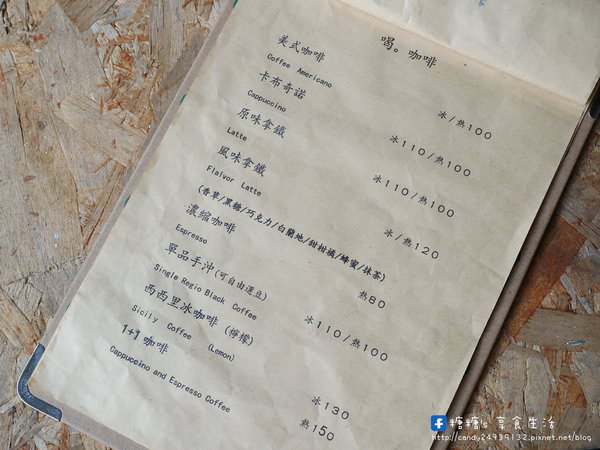 喝。咖啡
美式咖啡 冰/熱100
Coffee Americano
卡布奇諾 冰110/熱100
Cappuccino
原味拿鐵 冰110/熱100
Latte
風味拿鐵 冰/熱120
Flalvor Latte
(香草/黑糖/巧克力/白蘭地/甜柑橘/蜂蜜/抹茶)
濃縮咖啡 熱80
Espresso
單品手沖(可自由選豆) 冰110/熱100
Single Regio Black Coffee
西西里冰咖啡(檸檬) 冰130
Sicily Coffee (Lemon)
1+1咖啡 熱150
Cappuccino and Espresso Coffee
糖糖's 享食生活
http://candy24939132.pixnet.net/blog